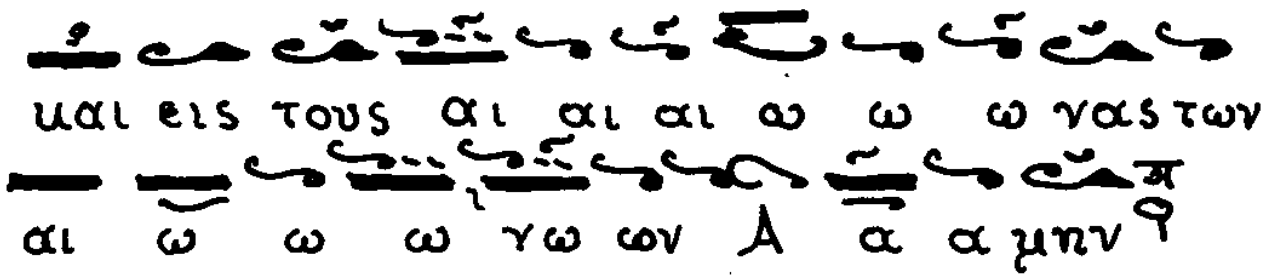 και εις τους αι αι αι ω ω ω νας των
αι ω ω ω νω ων Α α α μην